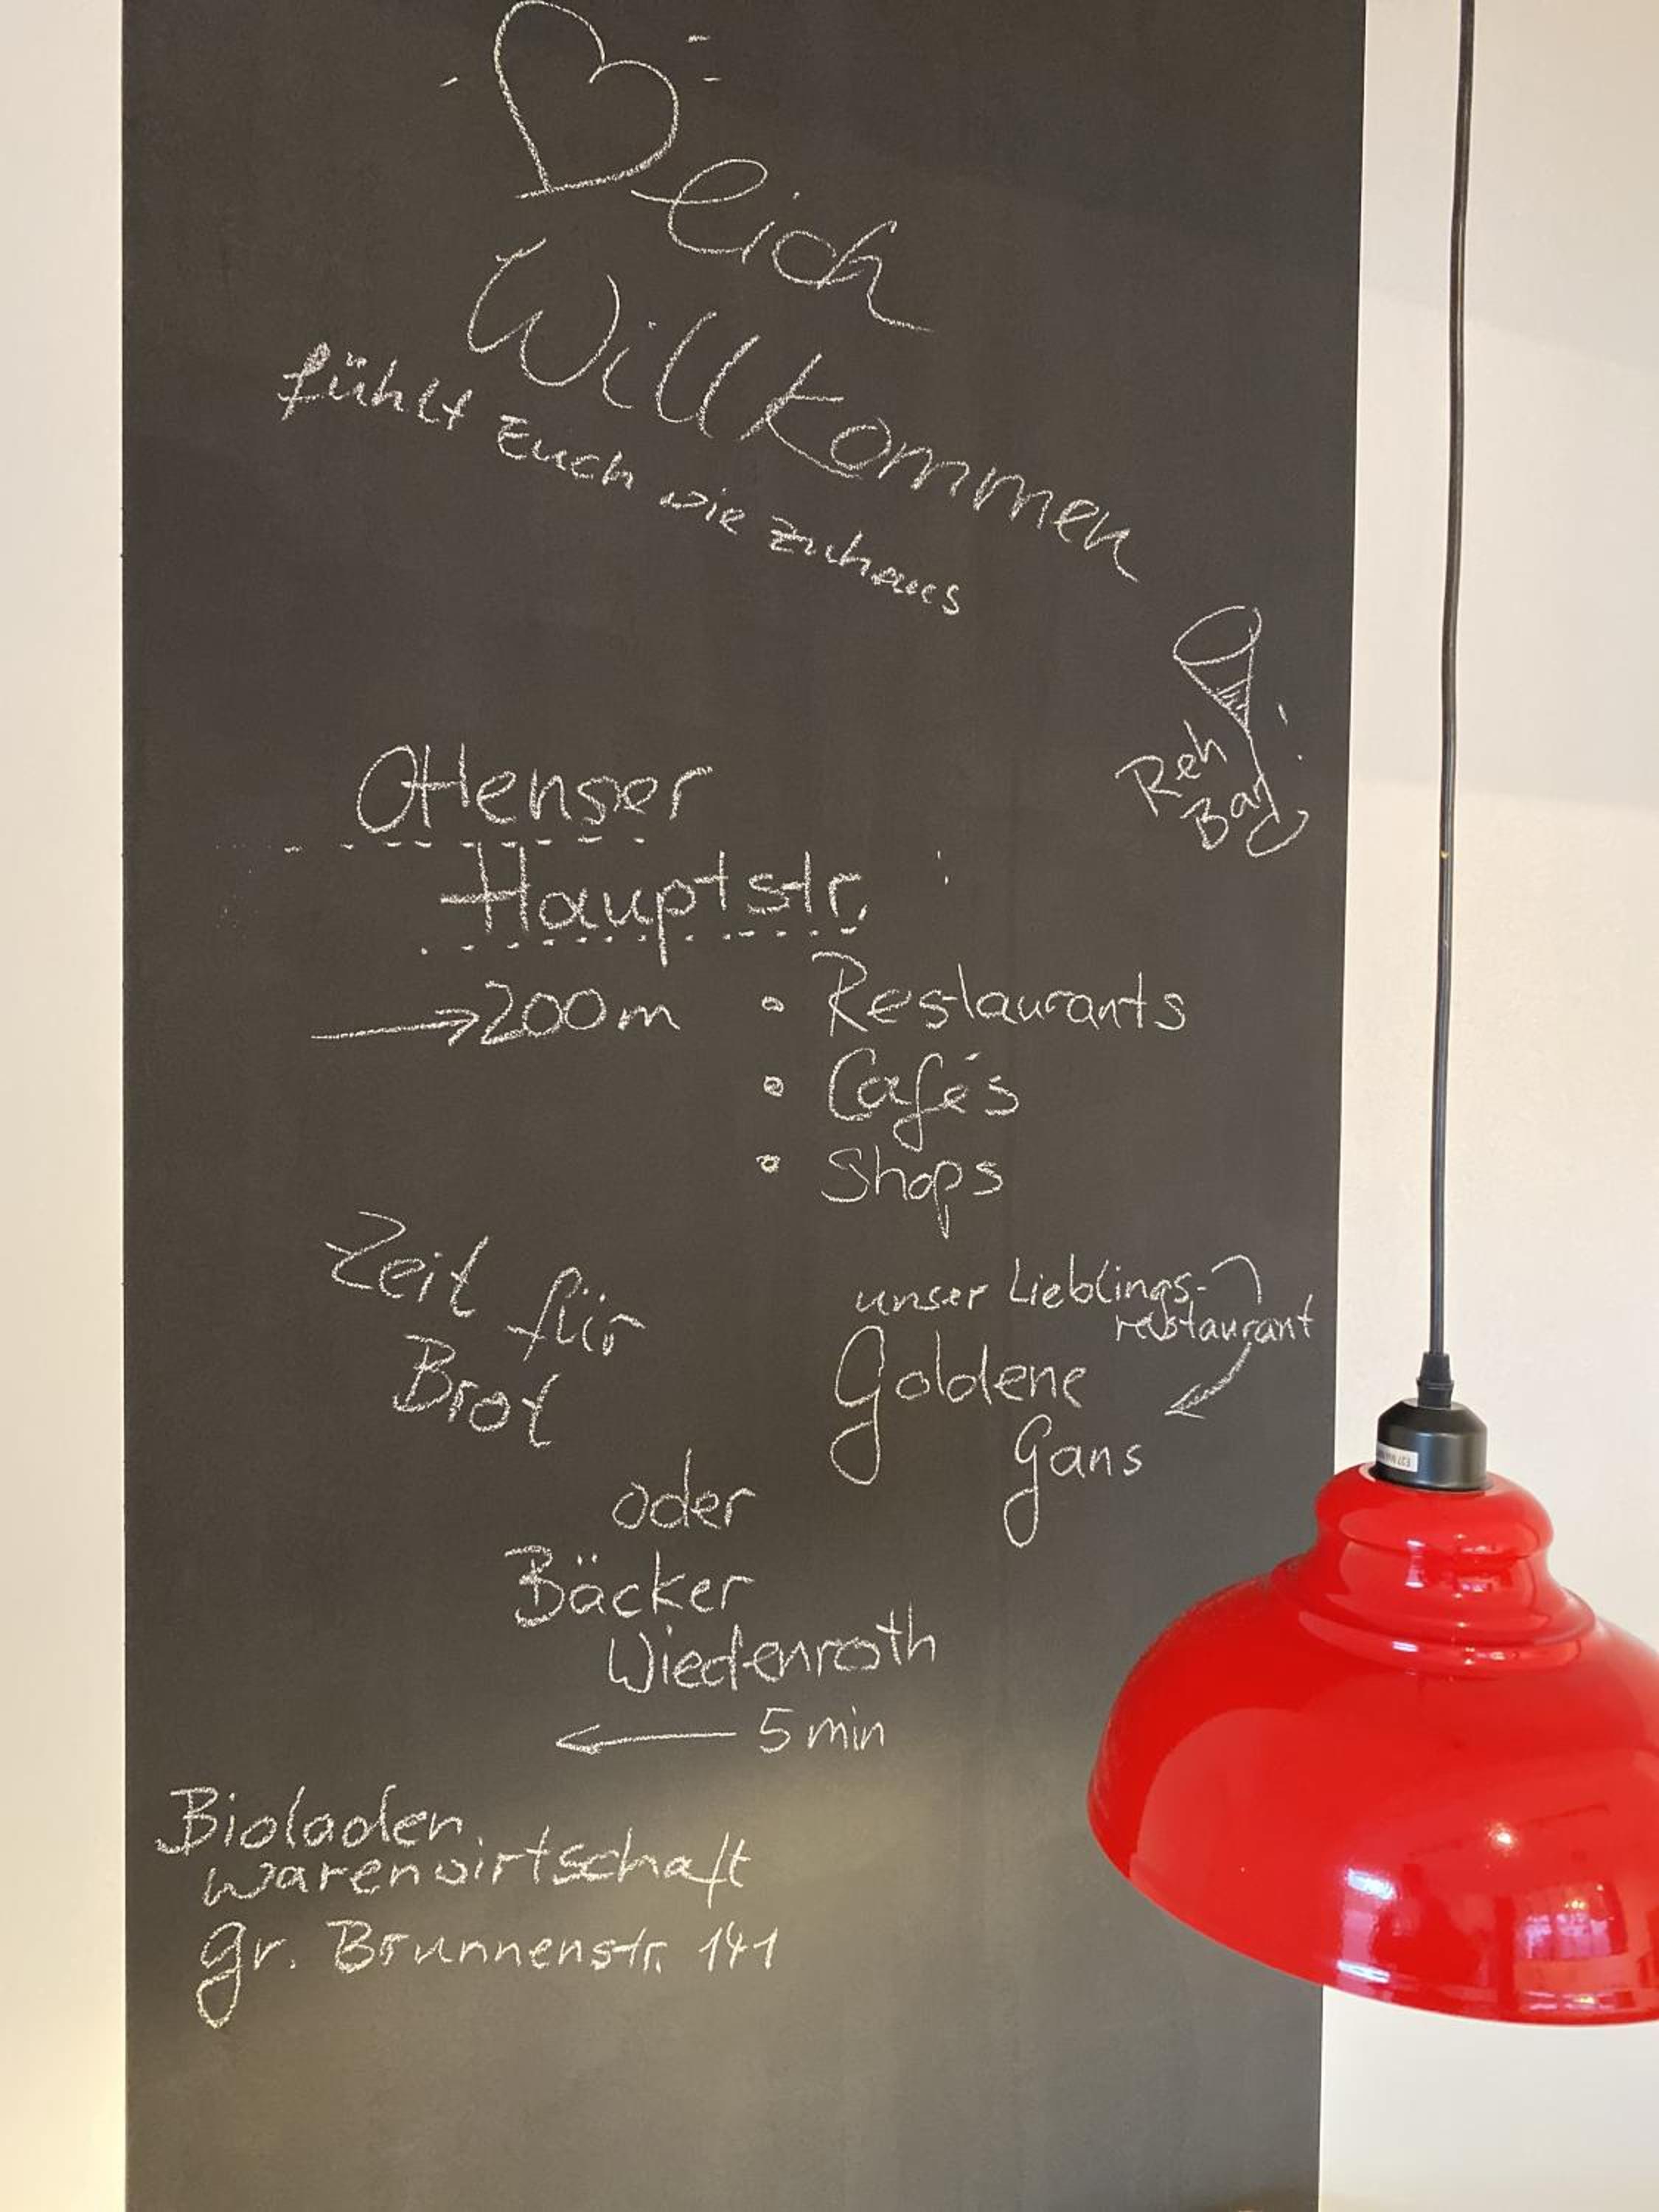 ♡lich
Willkommen
fühlt Euch wie zuhaus
Reh
Bar
Ottenser
Hauptstr.
→ 200m
• Restaurants
• Cafés
• Shops
Zeit für
Brot
unser Lieblings-
restaurant
Goldene
Gans
oder
Bäcker
Wiedenroth
← 5 min
Bioladen
warenwirtschaft
gr. Brunnenstr. 141